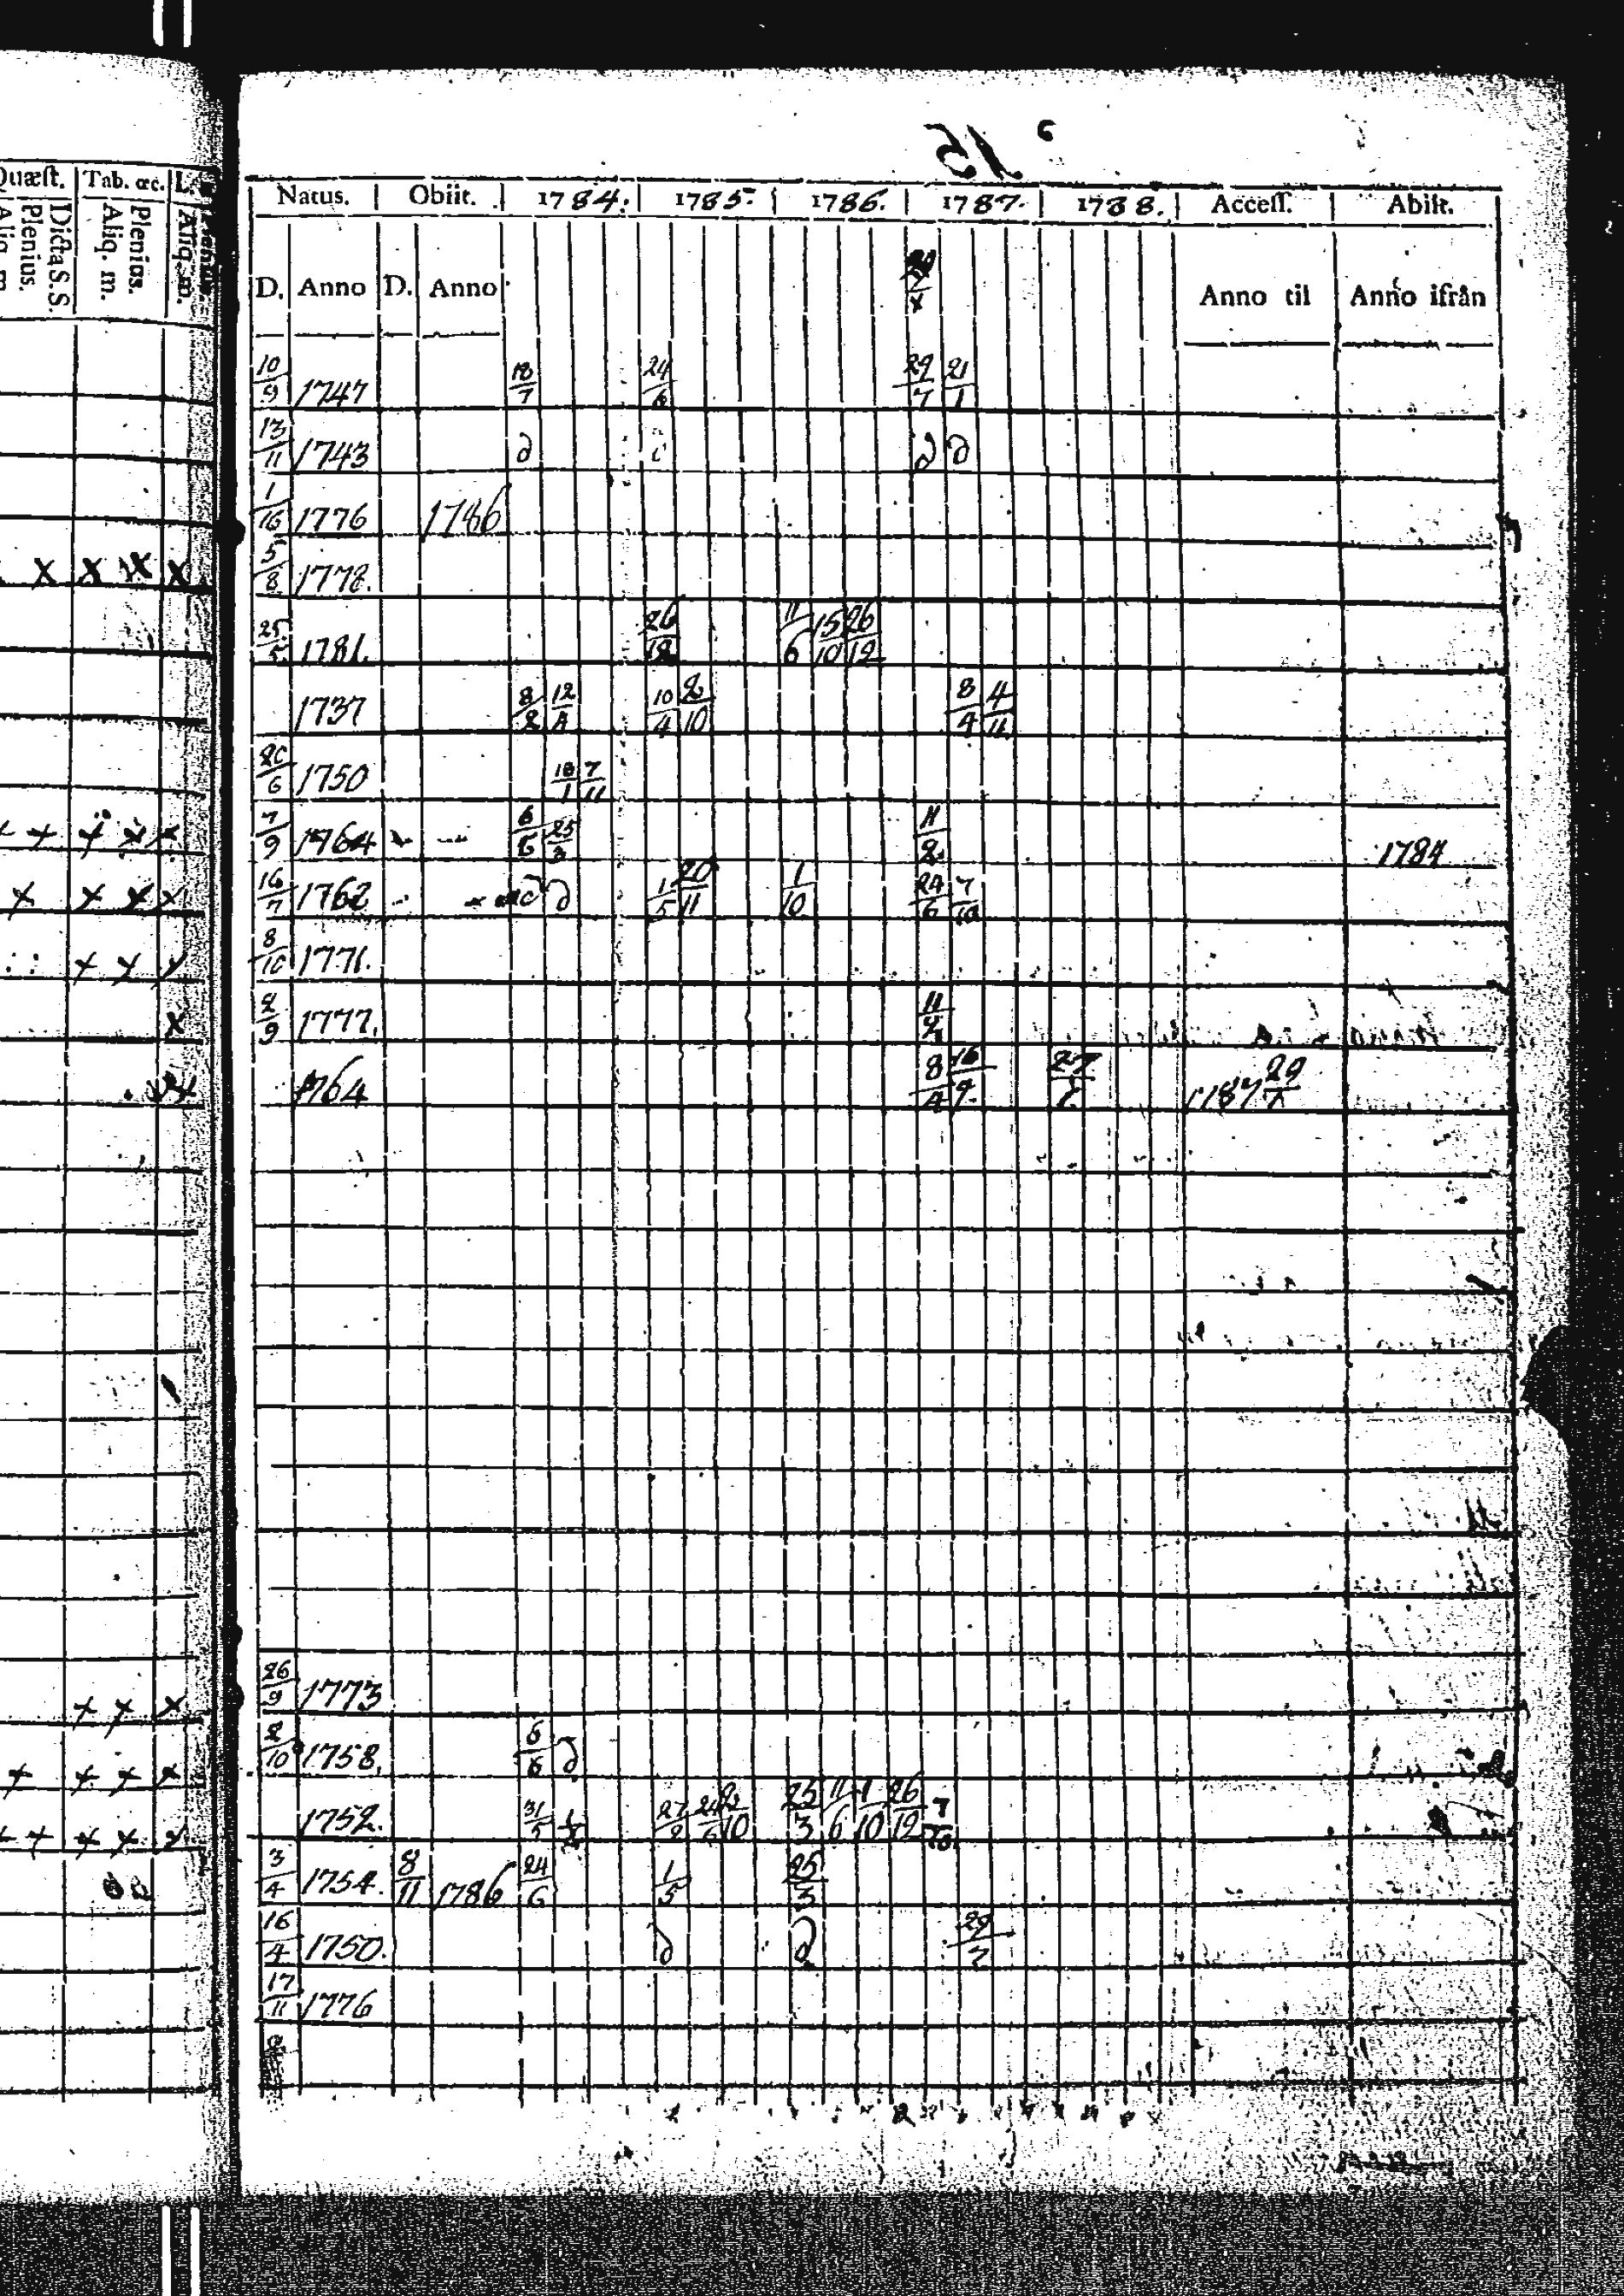 15
Quæst. Tab. œc.
Dicta S.S.
Plenius.
Plenios.
Aliq. m.
Aliq. m.
Natus. Obiit. 1784. 1785. 1786. 1787. 1788. Access. Abiit.
D. Anno D. Anno Anno til Anno ifrån
10/9 1747 18/7 24/6 29/7 21/1
13/11 1743 d d d
1/16 1776 1786
5/8 1778.
25/5 1781. 26/12 11/6 15/10 26/12
1737 8/2 12/4 10/4 2/10 8/4 4/11
26/6 1750 18/1 7/11
7/9 1764 6/6 25/3 11/2 1784
16/7 1762 d d 1/5 20/11 1/10 24/6 7/10
8/10 1771.
2/9 1777. 11/2
1764 8/4 16/9 27 1787 29/7
26/9 1773
2/10 1758. 6/6 d
1752. 31/5 27/2 24/6 2/10 25/3 11/6 1/10 26/12 7/10
3/4 1754. 8/11 1786 24/6 1/5 25/3
16/4 1750. d d 29/7
17/11 1776